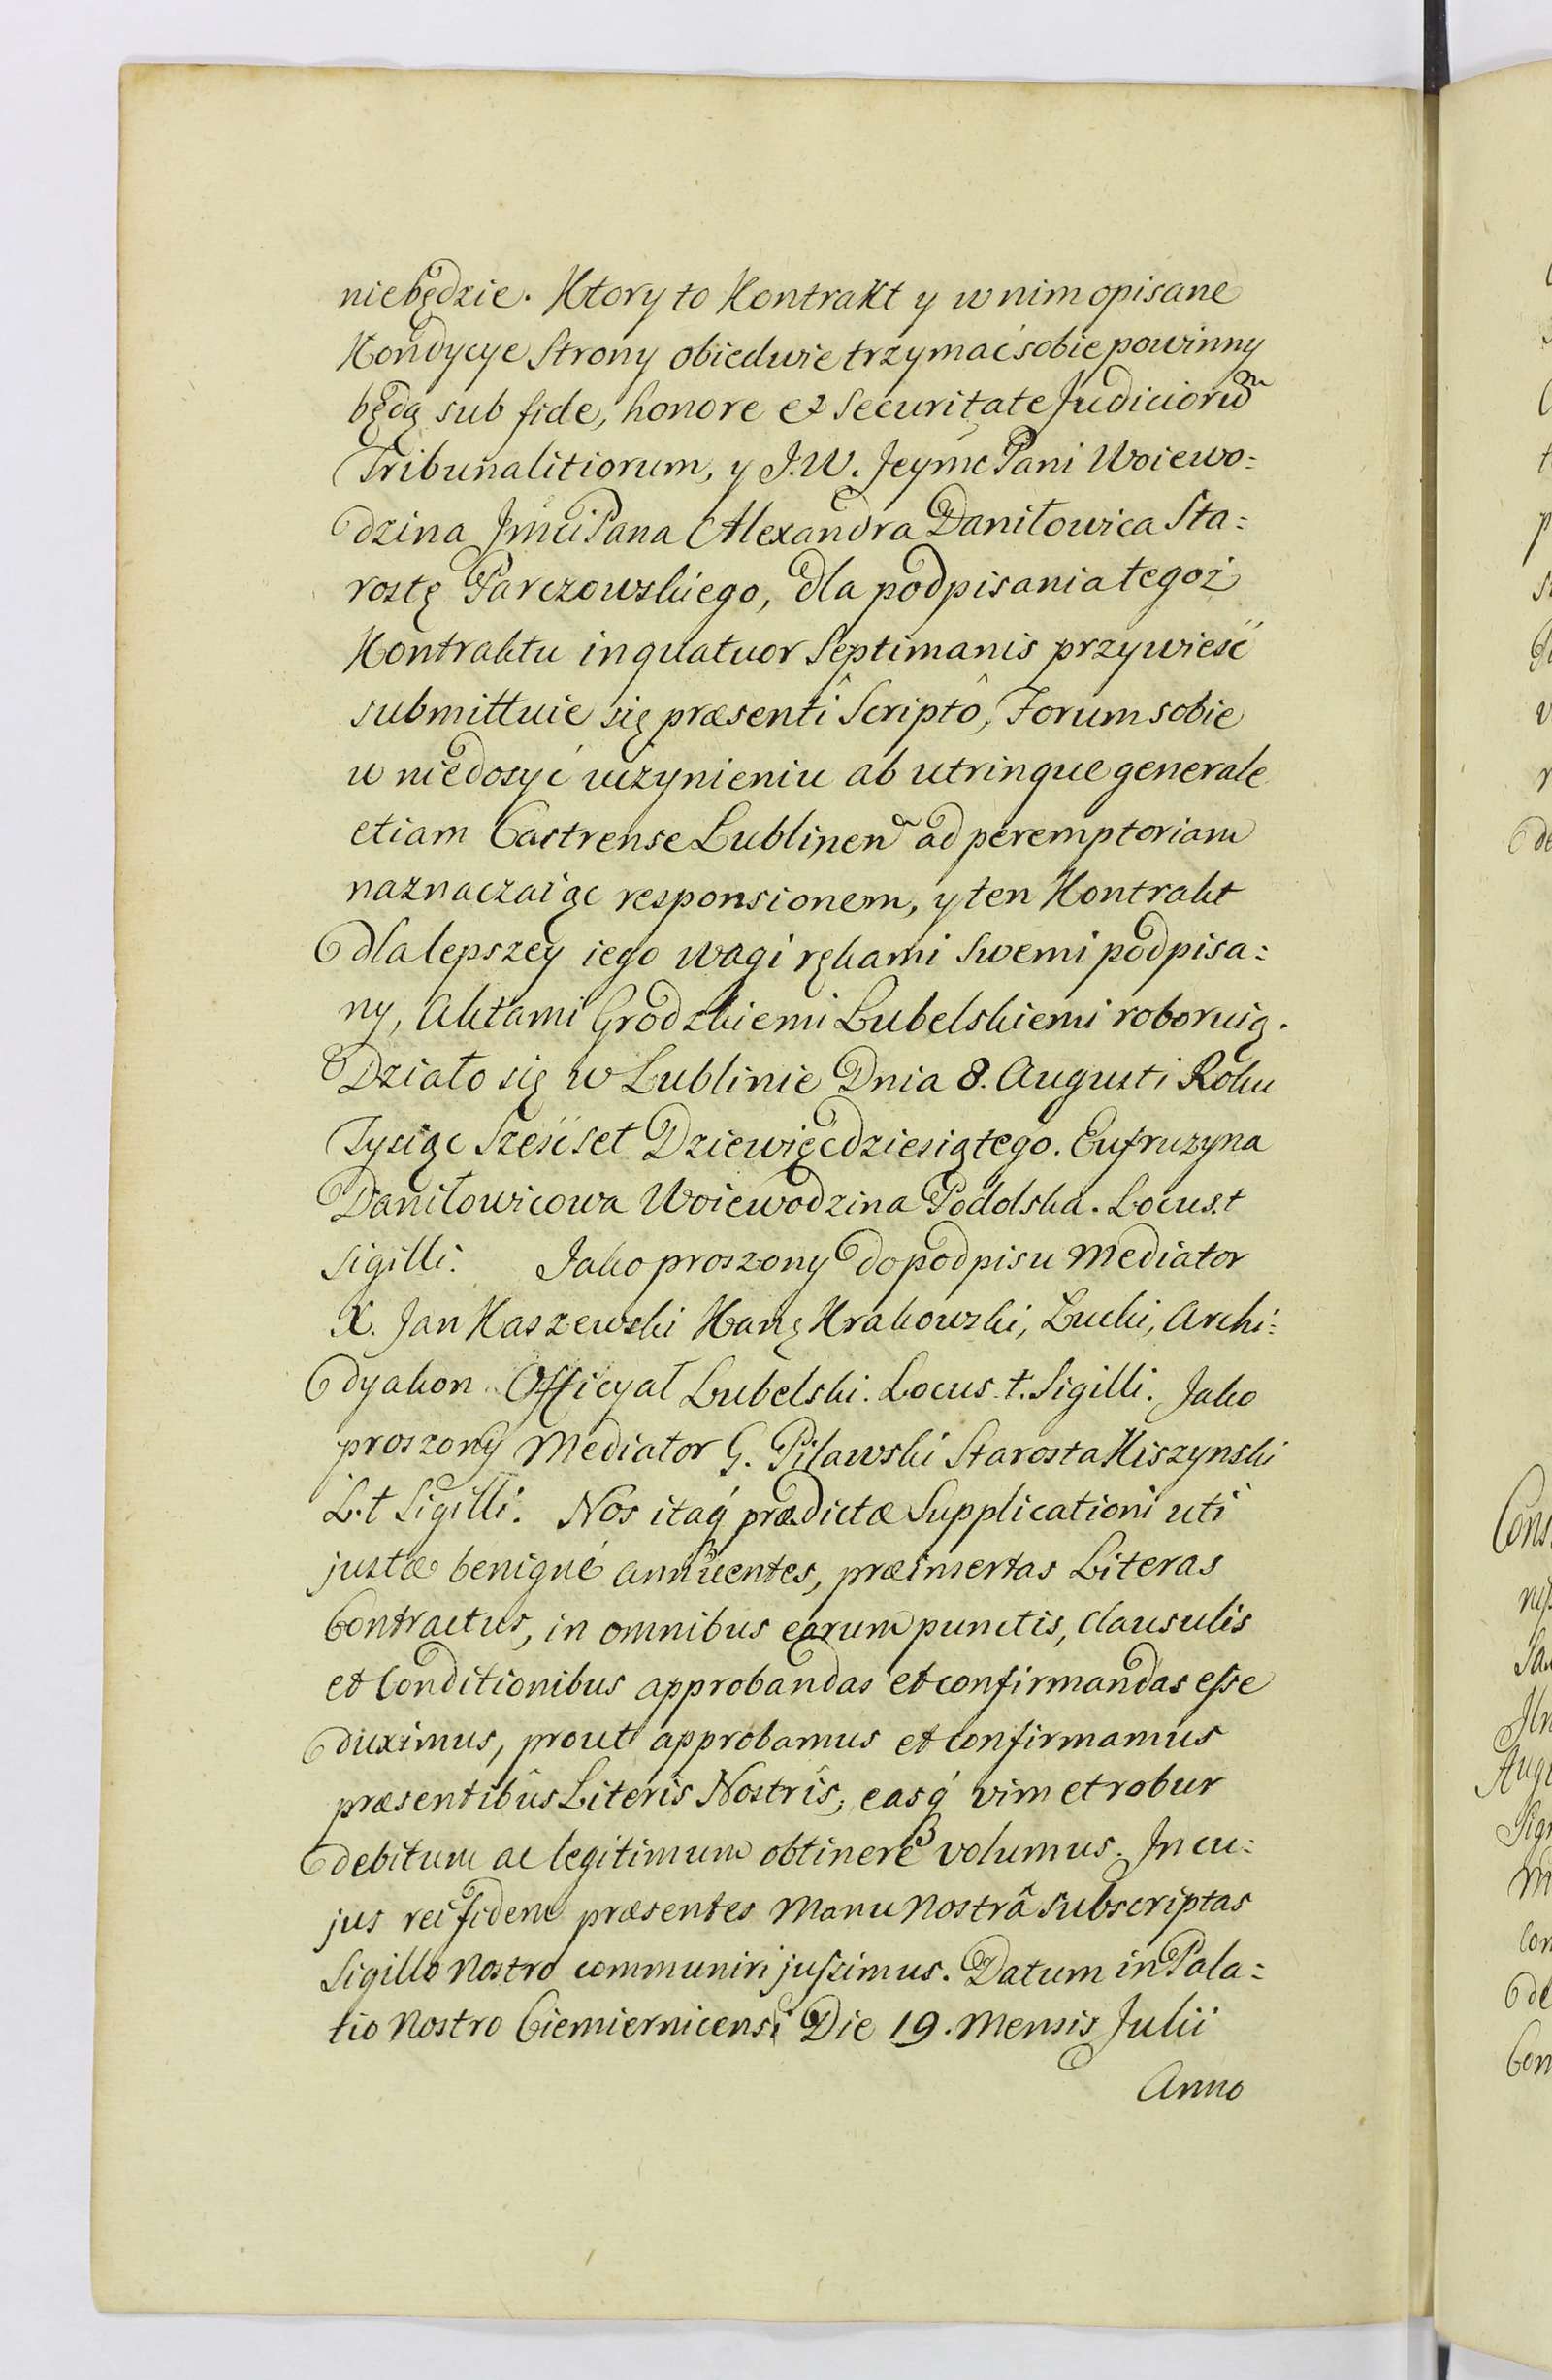 niebędzie. Ktory to Kontrakt y w nim opisane
Kondycye Strony obiedwie trzymać sobie powinny
będą sub fide, honore et Securitate Judiciorum
Tribunalitiorum, y J.W. Jeymć Pani Woiewo:
dzina Jmći Pana Alexandra Daniłowica Sta:
rostę Parczowskiego, dla podpisania tegoż
Kontraktu in quatuor Septimanis przywieść
submittuie się præsentî Scriptô, Forum sobie
w niedosyć uczynieniu ab utrinque generale
etiam Castrense Lublinen ad peremptoriam
naznaczaiąc responsionem, y ten Kontrakt
dla lepszey iego wagi rękami Swemi podpisa:
ny, Aktami Grodzkiemi Lubelskiemi roboruią.
Działo się w Lublinie Dnia 8. Augusti Roku
Tysiąc Sześćset Dziewięćdziesiątego. Eufruzyna
Daniłowicowa Woiewodzina Podolska. Locus.t
Sigilli. Jako proszony do podpisu Mediator
X. Jan Kaszewski Kan: Krakowski, Łucki, Archi:
dyakon Officyał Lubelski. Locus.t. Sigilli. Jako
proszony Mediator G. Pilawski Starosta Kiszynski
L.t Sigilli. Nos itaq́ prædictæ Supplicationi uti
justæ benigné annuentes, præinsertas Literas
Contractus, in omnibus earum punctis, Clausulis
et Conditionibus approbandas et confirmandas esse
duximus, prout approbamus et confirmamus
præsentibûs Literîs Nostrîs, easq́ vim et robur
debitum ac legitimum obtinere volumus. In cu:
jus rei fidem præsentes Manu Nostrâ Subscriptas
Sigillo Nostro communiri jussimus. Datum in Pala:
tio Nostro Ciemiernicensi Die 19. Mensis Julii
Anno